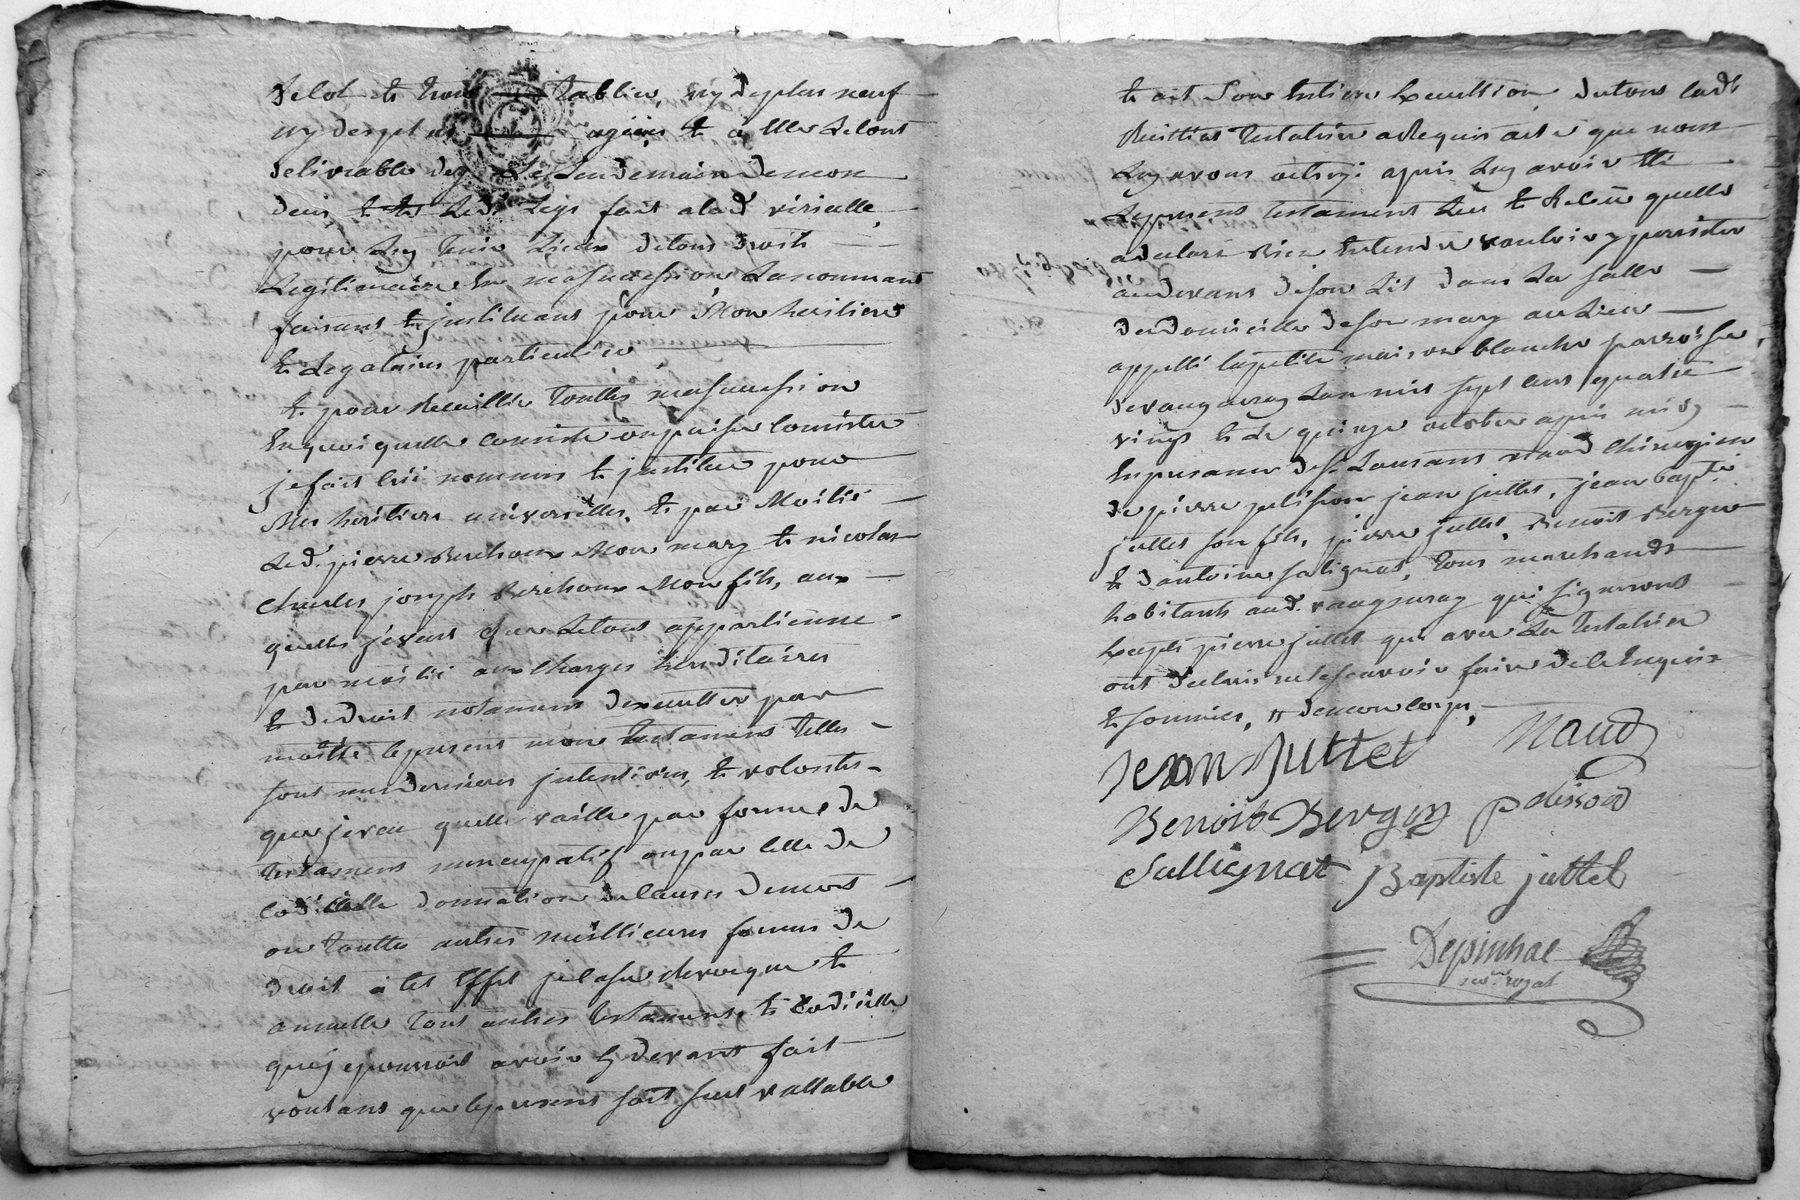 delot et trois tablier, ny de plus neuf
ny des plus agées et a elle seront
delivrable des Le Lendemain de mon
deces Led. Legs fait a lad.
pour luy tenir Lieu de tous droits
Legitimaire En ma succession La nommant
faisant et jnstituant pour Mon heritiere
et Legataire particuliere
Et pour Recuillir touttes ma succession
En quoi quelle consiste ou puisse consister
je fais crée nomme et jnstitue pour
Mes heritiers universelles, et par Moitié
Led. pierre Berchoux Mon mary et nicolas
Charles joseph Berchoux Mon fils, aux
quels je veux que Le tout appartienne
par moitié aux Charges hereditaires
et de droit notament dexecutter par
moitié le present mon testament telles
sont mes dernieres jntentions, et volontés
que je veu quelle vaille par forme de
testament nuncupatif ou par celle de
codicille donnation a Causes de mort
ou touttes autres meillieures formes de
droit a cet Effet je Casse revoque et
annulle tout autres testament et codicille
que je pourrois avoir cy devant fait
voulant que le present soit seul vallable
et ait Son Entiere Execution, de tous lad.
testatrice a Requis acte que nous
Luy avons octroyé apres Luy avoir été
Le present testament Leu et Releu quelle
a declaré Bien Entendre vouloir y persister
au devant de son Lit dans La salle
du domicille de son mary au Lieu
appellé la petite maison blanche parroisse
de vaugneray Lan mil sept cent quatre
vingt et Le quinze octobre apres midy
En presence de Sr. Laurant naud Chirurgien
de pierre pelisson jean juttet, jean bapt.
juttet son fils, pierre juttet, Benoit Berger
et dantoine salignat, tous marchands
habitants aud. vaugneray qui signeront
Exepté pierre juttet qui avec La testatrice
ont declaré ne scavoir faire de ce Enquis
et sommés,
Jean Juttet Naud
Benoit Berger pelisson
Sallignat Baptiste juttet
Depinhac
nore. royal